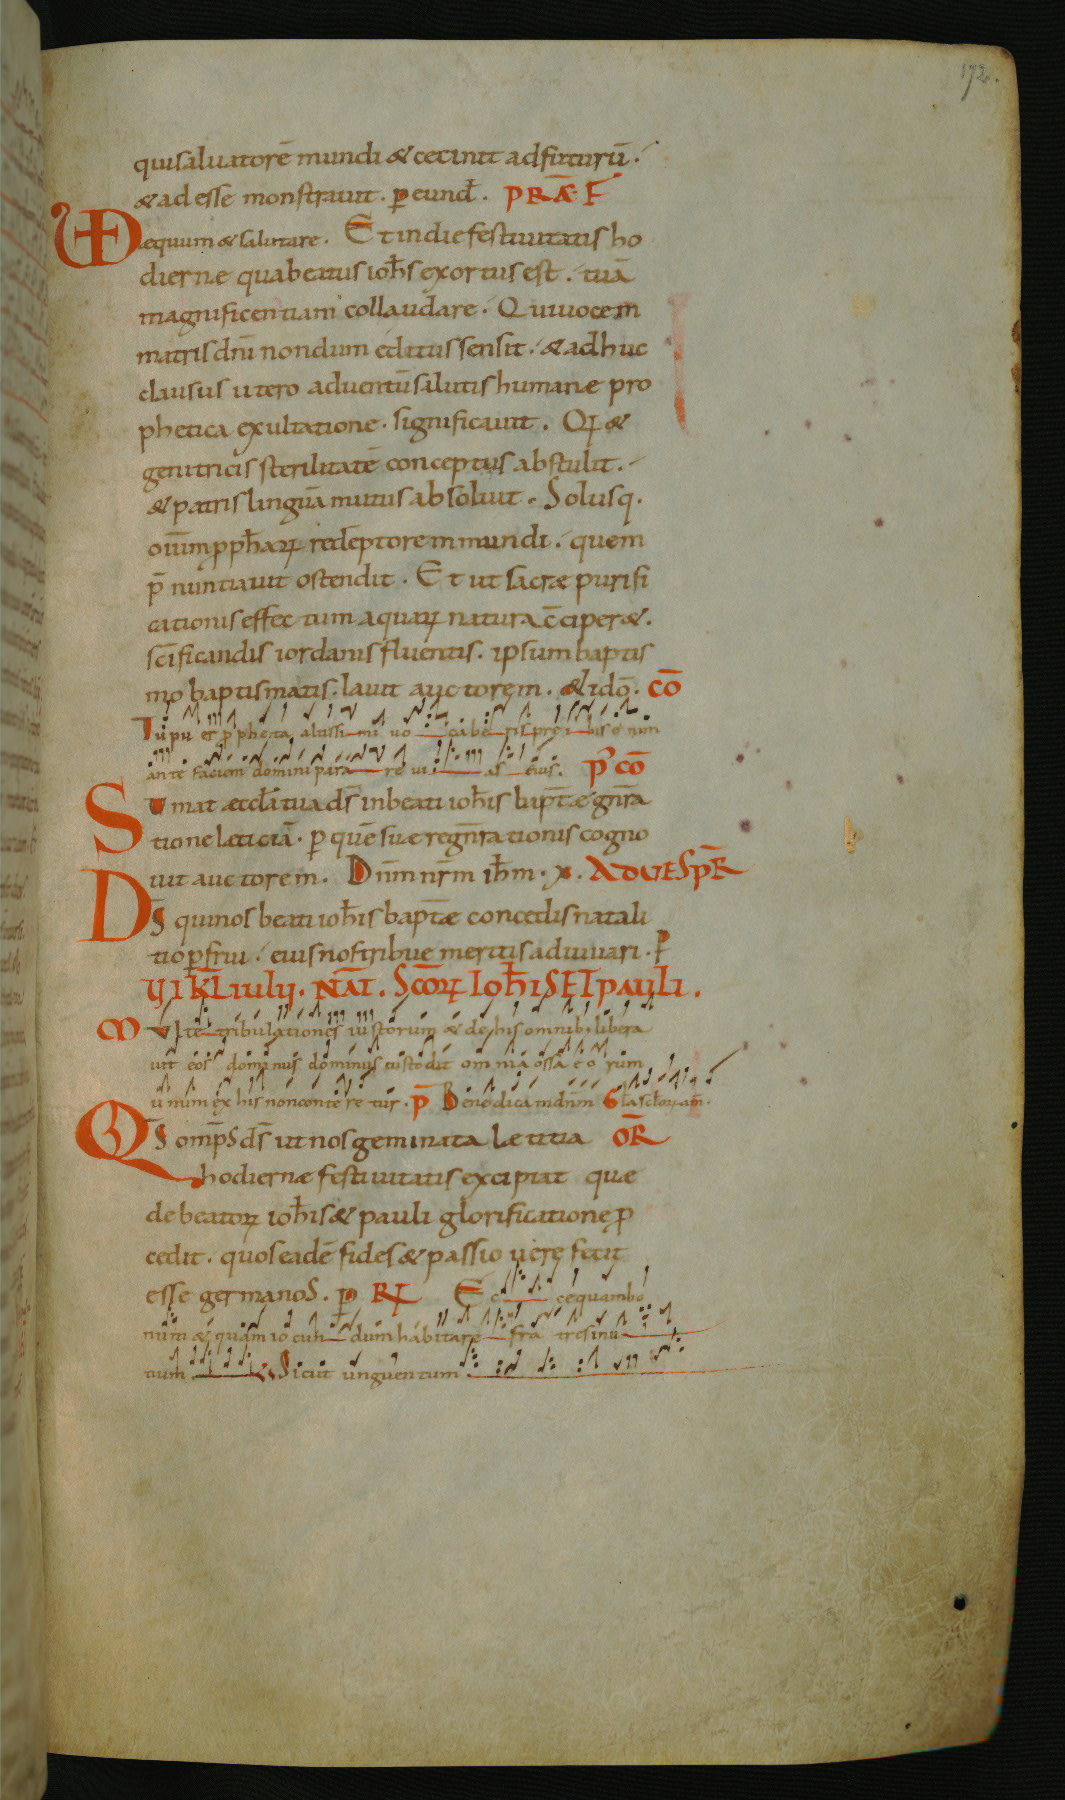 172.
qui saluatorē mundi & cecinit adfuturū.
& ad esse monstrauit. p eund. PRÆF
VD æquum & salutare. Et in die festiuitatis ho
diernæ qua beatus iohs exortus est. tuā
magnificentiam collaudare. Qui uocem
matris dn̄i nondum editus sensit. & adhuc
clausus utero aduentū salutis humanæ pro
phetica exultatione. significauit. Qꝝ &
genitricis sterilitatē conceptus abstulit.
& patris linguā mutus absoluit. Solusq.
oīum pphaꝝ redēptorem mundi. quem
p̄ nuntiauit ostendit. Et ut sacræ purifi
cationis effectum aquaꝝ natura c̄ciper&.
sc̄ificandis iordanis fluentis. ipsum baptis
mo baptismatis. lauit auctorem. & idō. CŌ
Tu puer ppheta altissimi uocaberis preibis enim
ante faciem domini parare uias eius. P' CŌ
Sumat æccla tua ds̄ in beati iohis bapt̄æ gn̄ra
tione leticiā. p quē suæ regn̄rationis cogno
uit auctorem. Dn̄m nr̄m ihm. x. AD UESPR̄
Ds̄ qui nos beati iohis bapt̄æ concedis natali
tio pfrui. eius nos tribue meritis adiuuari. P
VII KL IULII. NAT̄. SC̄OꝜ IOHIS ET PAULI.
Multe tribulationes iustorum & de his omnib; libera
uit eos dominus dominus custodit omnia ossa eorum
unum ex his non conteretur. P̄ Benedicam dn̄m Gla scloꝝ am.
Qs omps ds̄ ut nos geminata lætitia OR̄
hodiernæ festiuitatis excipiat quæ
de beatoꝝ iohis & pauli glorificatione p
cedit. quos eadē fides & passio uere fecit
esse germanos. p RꝜ Ecce quam bo
num & quam iocundum habitare fratres in u
num Sicut unguentum